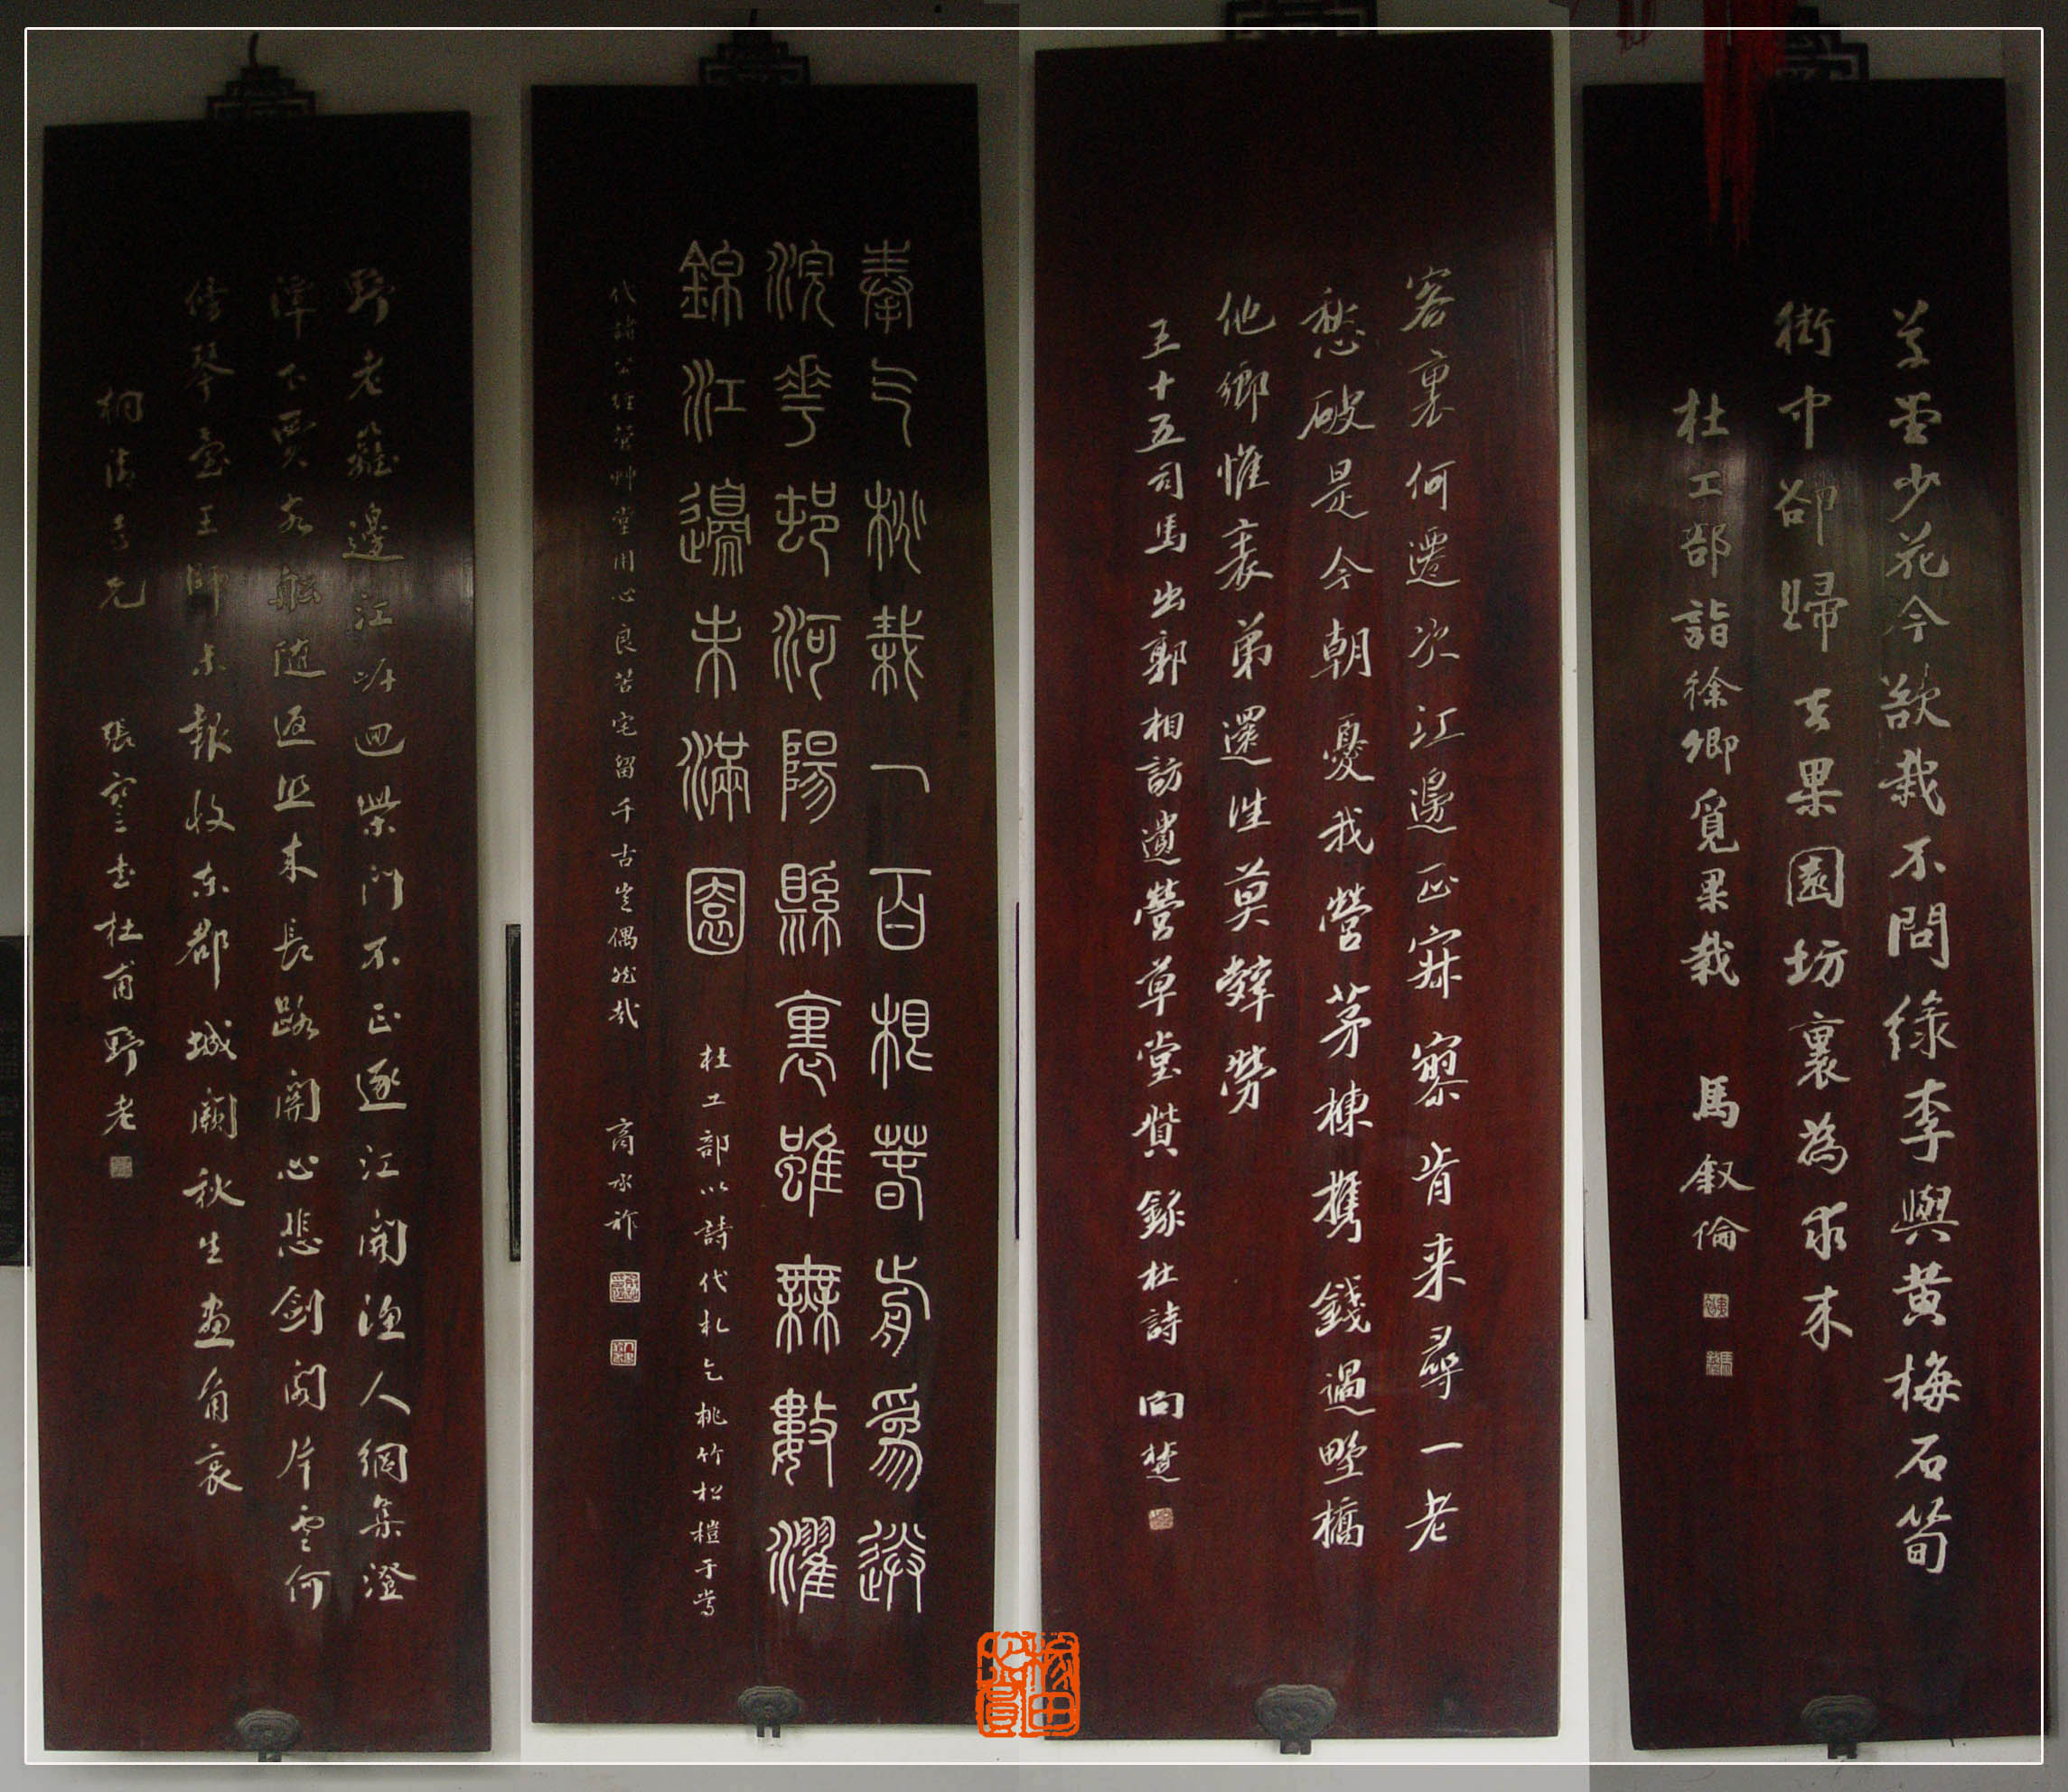 草堂少花今欲栽不問綠李與黃梅石筍
街中卻歸去果園坊裏為求来
杜工部詣徐卿覓果栽 馬叙倫
客裏何遷次江邊正寂寥肯来尋一老
愁破是今朝憂我營茅棟攜錢過野橋
他鄉惟表弟還往莫辭勞
王十五司馬出郭相訪遺營草堂貲 錄杜詩 向楚
奉乞桃栽一百根春前為送
浣花邨河陽縣裏雖無數濯
錦江邊未滿園
杜工部以詩代札乞桃竹松榿于當
代諸公經營艸堂用心良苦宅留千古豈偶然哉 商承祚
野老籬邊江岸迴柴門不正逐江開漁人網集澄
潭下賈客船隨返照来長路關心悲劍閣片雲何
傍琴臺王師未報收東郡城闕秋生畫角哀
杜甫野老